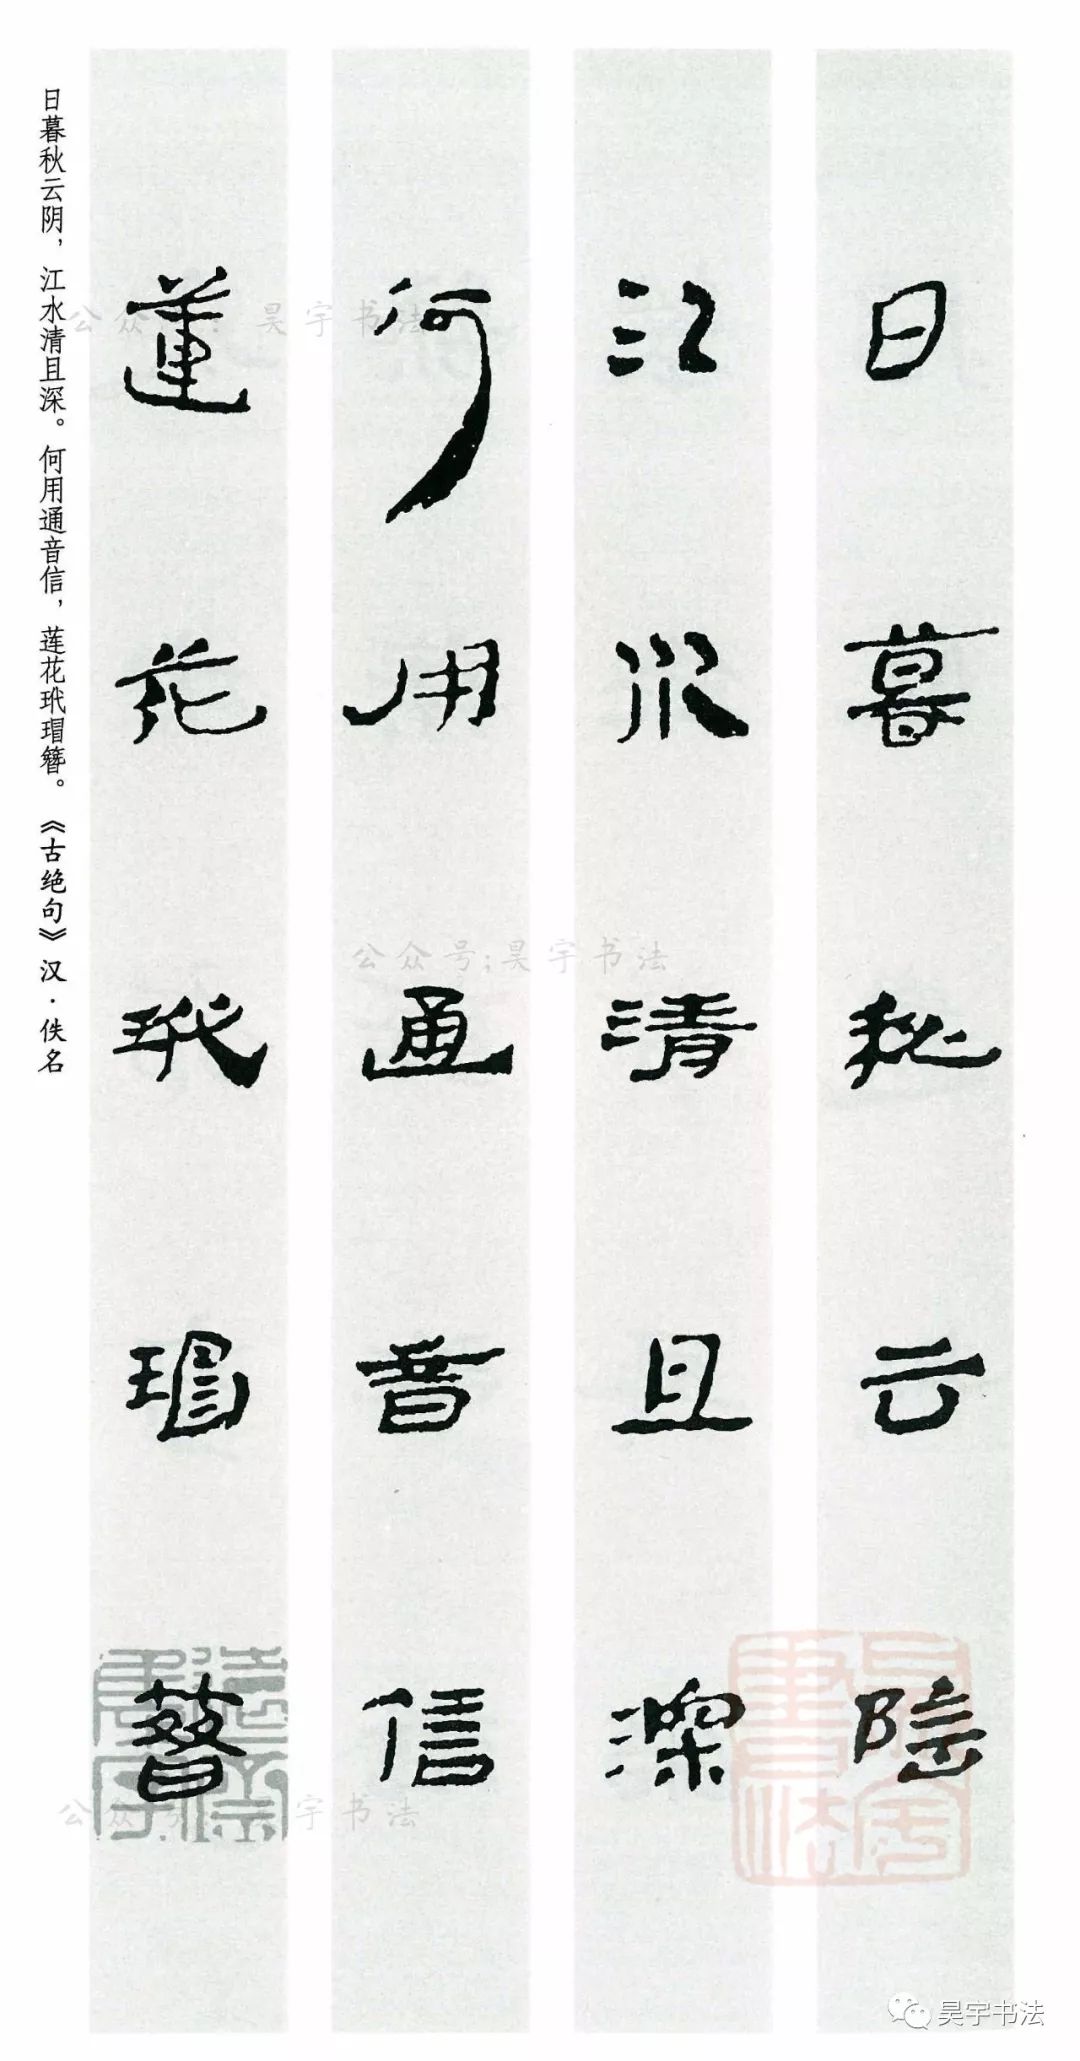 日暮秋云陰
江水清且深
何用通音信
蓮花玳瑁簪
日暮秋云阴，江水清且深。何用通音信，莲花玳瑁簪。《古绝句》汉·佚名
公众号:昊宇书法
公众号;昊宇书法
公众号:昊宇书法
昊宇书法
昊宇书法